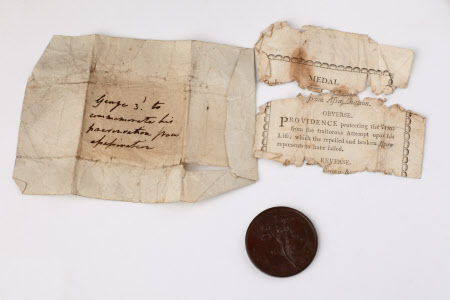 George 3d. to
commemorate his
preservation from
assassination
MEDAL
from Assassination.
OBVERSE.
PROVIDENCE protecting the KING
from the traiterous Attempt upon his
Life, which the repelled and broken
represents to have failed.
REVERSE.